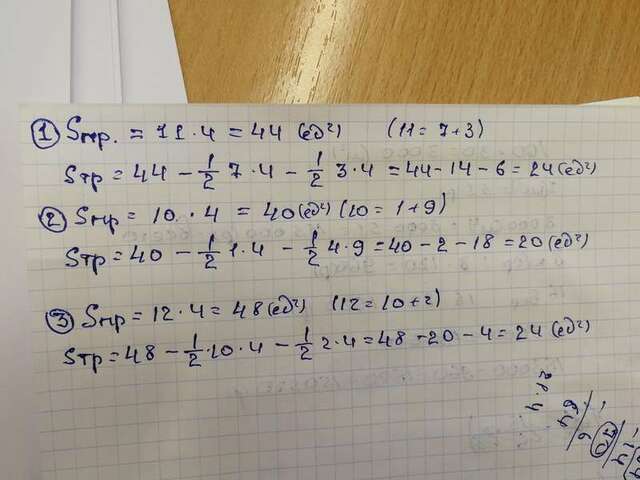 ① Sпр. = 11·4 = 44 (ед²) (11 = 7+3)
Sтр = 44 − 1/2 7·4 − 1/2 3·4 = 44 − 14 − 6 = 24 (ед²)
② Sпр = 10·4 = 40 (ед²) (10 = 1+9)
Sтр = 40 − 1/2 1·4 − 1/2 4·9 = 40 − 2 − 18 = 20 (ед²)
③ Sпр = 12·4 = 48 (ед²) (12 = 10+2)
Sтр = 48 − 1/2·10·4 − 1/2 2·4 = 48 − 20 − 4 = 24 (ед²)